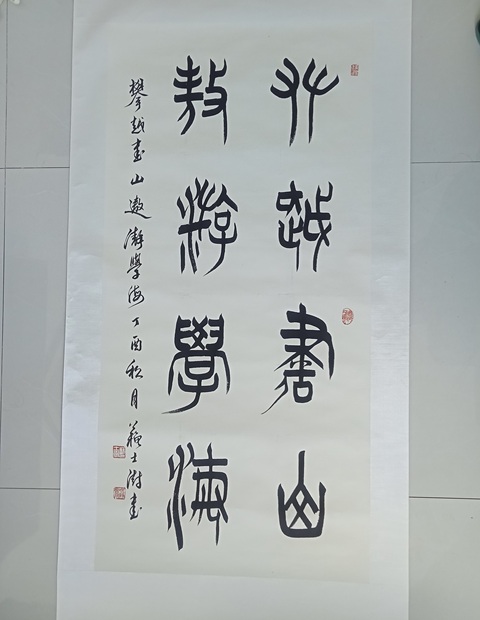 攀越書山
敖游學海
攀越書山遨游學海丁酉秋月蘇士澍書